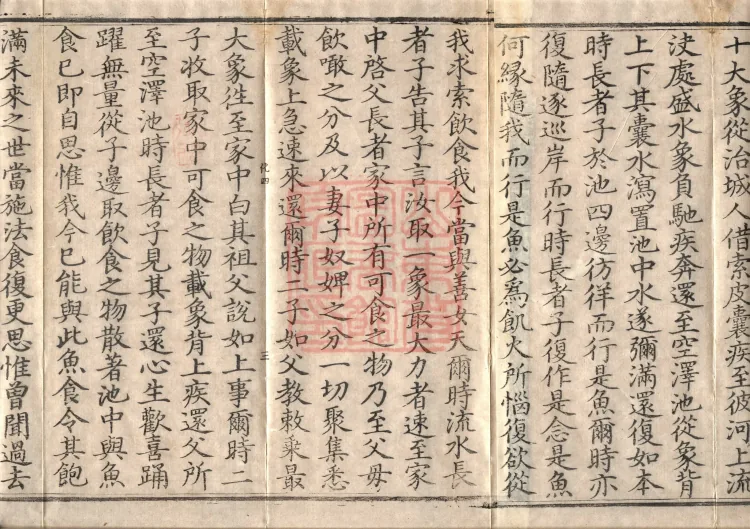 十大象從治城人借索皮囊疾至彼河上流
決處盛水象負馳疾奔還至空澤池從象背
上下其囊水瀉置池中水遂彌滿還復如本
時長者子於池四邊彷徉而行是魚爾時亦
復隨逐巡岸而行時長者子復作是念是魚
何緣隨我而行是魚必為飢火所惱復欲從
我求索飲食我今當與善女天爾時流水長
者子告其子言汝取一象最大力者速至家
中啓父長者家中所有可食之物乃至父母
飲噉之分及以妻子奴婢之分一切聚集悉
載象上急速來還爾時二子如父教敕乘最
大象往至家中白其祖父說如上事爾時二
子收取家中可食之物載象背上疾還父所
至空澤池時長者子見其子還心生歡喜踊
躍無量從子邊取飲食之物散著池中與魚
食已即自思惟我今已能與此魚食令其飽
滿未來之世當施法食復更思惟曾聞過去
化四
三